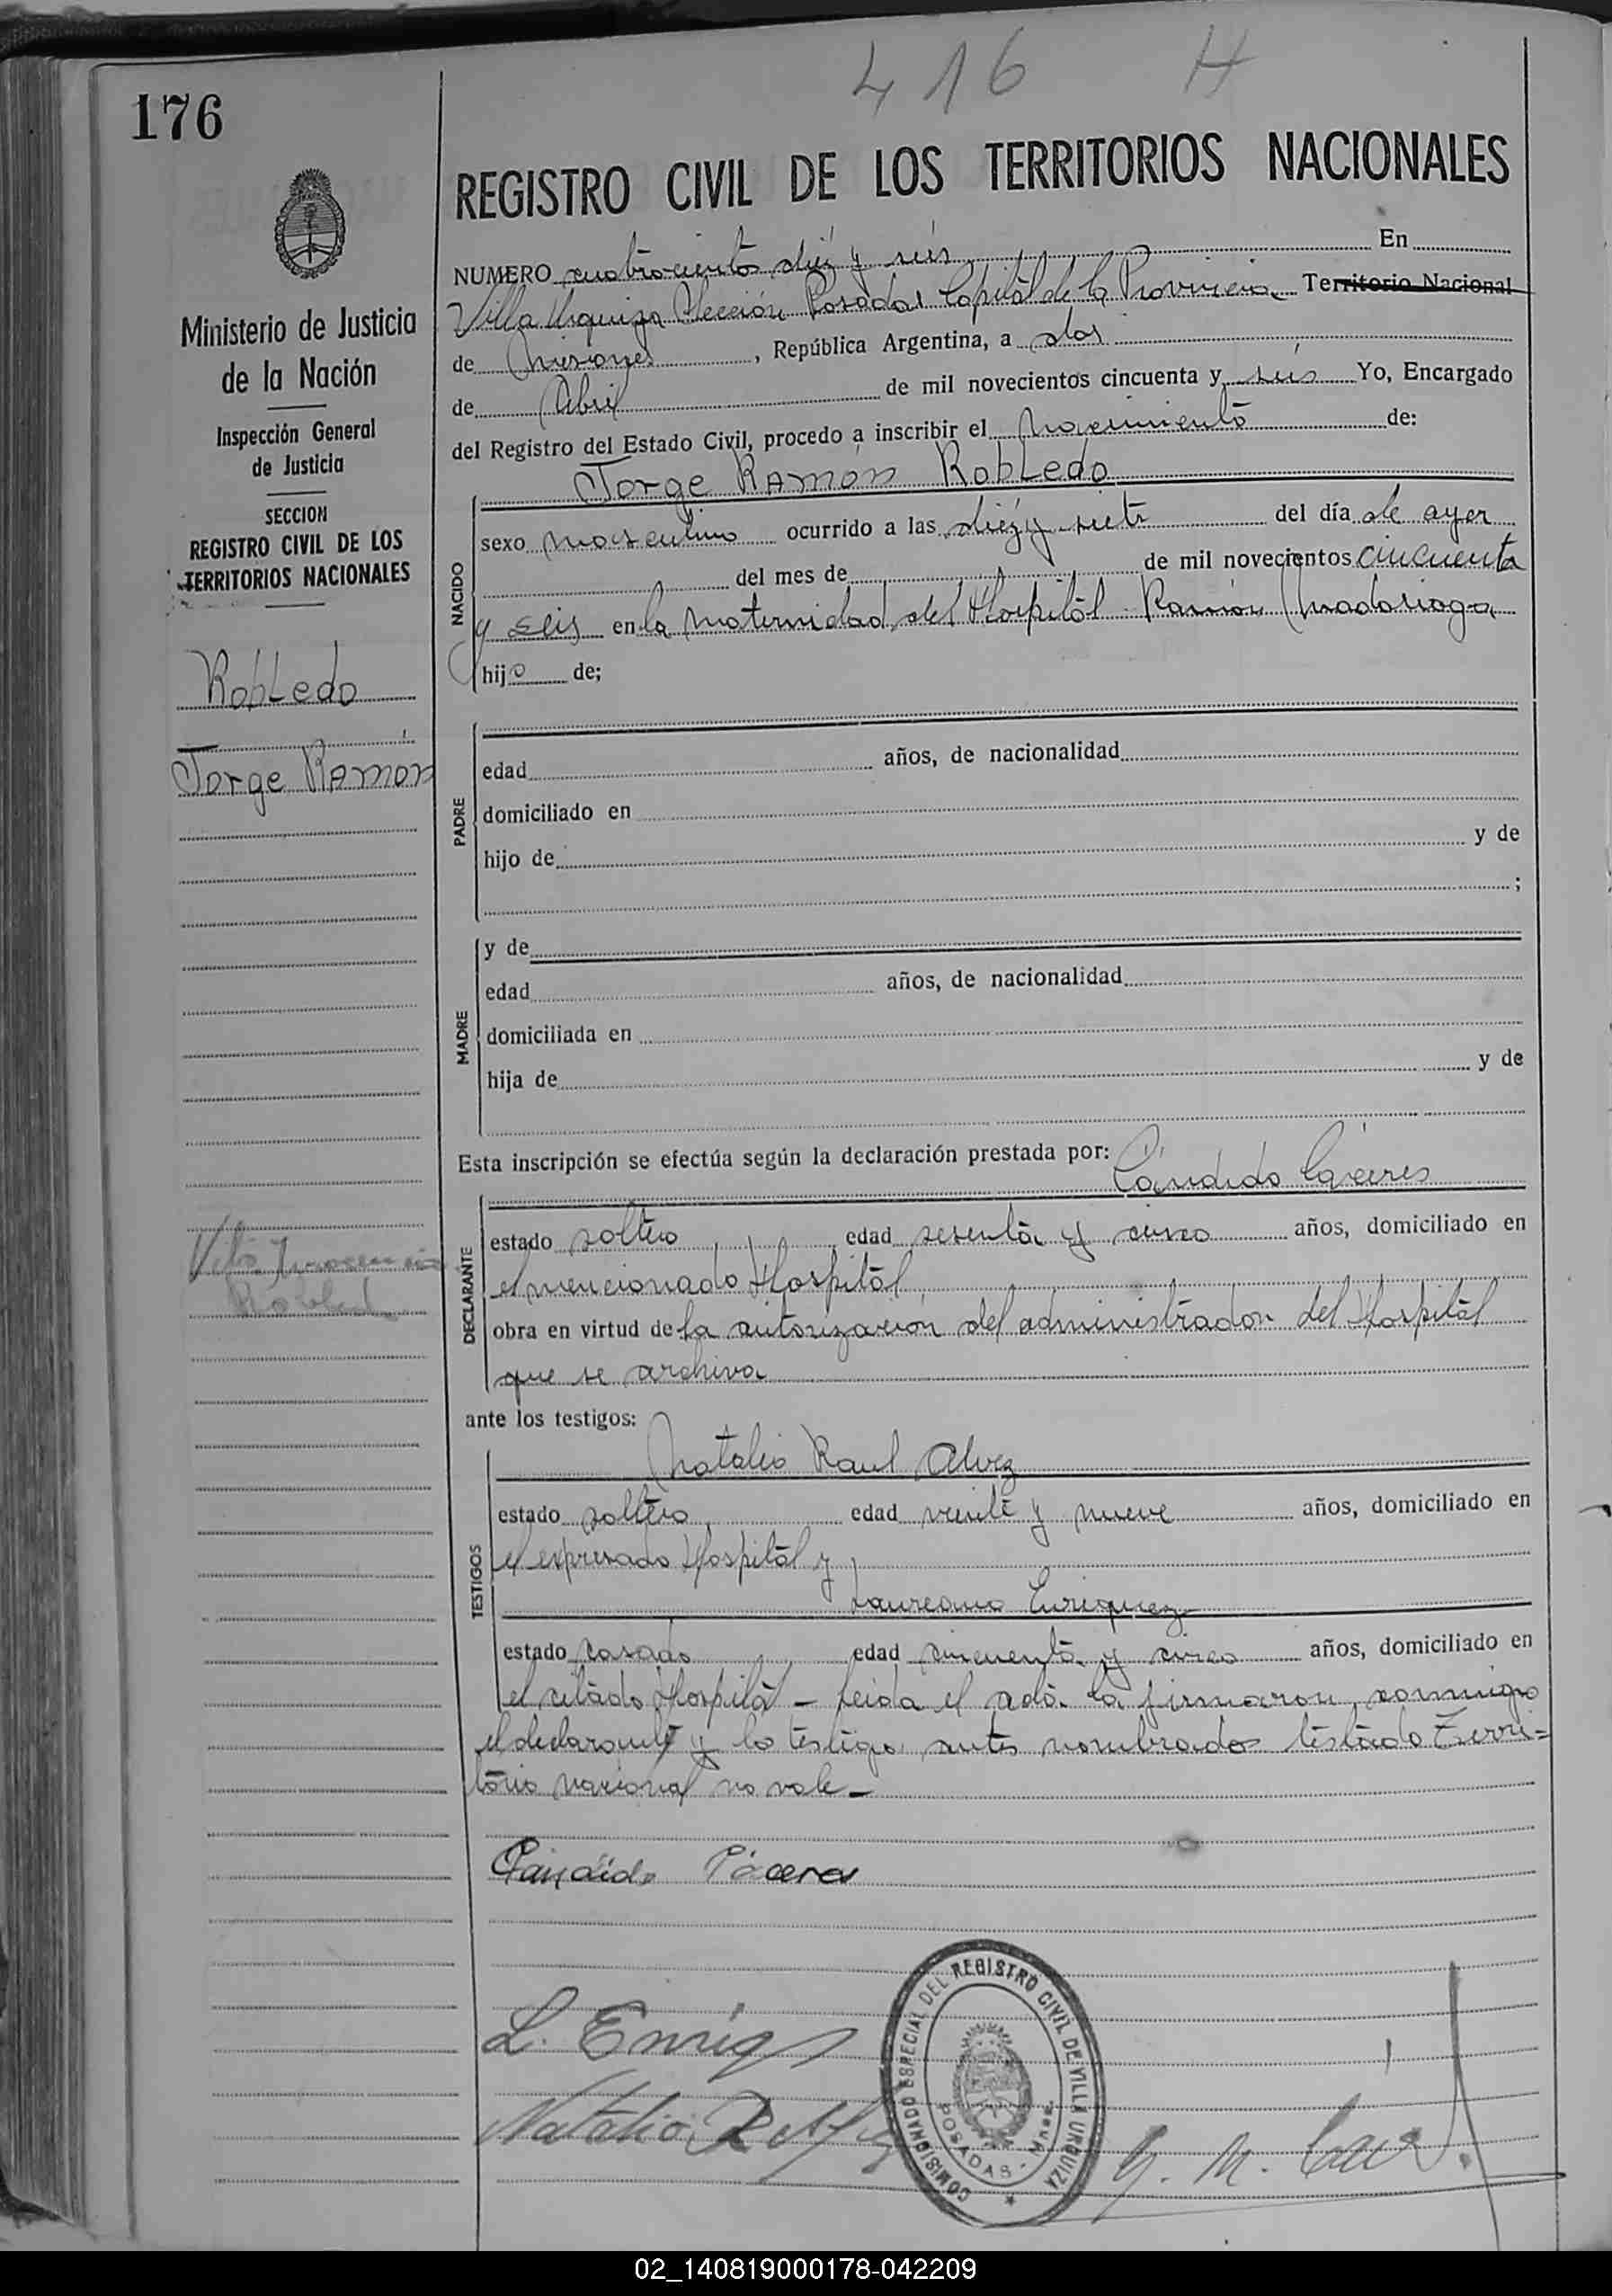 416 H
176
REGISTRO CIVIL DE LOS TERRITORIOS NACIONALES
NUMERO cuatrocientos diez y seis En
Villa Urquiza Sección Posadas Capital de la Provincia Territorio Nacional
de Misiones, República Argentina, a dos
de Abril de mil novecientos cincuenta y seis Yo, Encargado
del Registro del Estado Civil, procedo a inscribir el nacimiento de:
Jorge Ramón Robledo
NACIDO
sexo masculino ocurrido a las diez y siete del día de ayer
del mes de de mil novecientos cincuenta
y seis en la maternidad del Hospital Ramón Madariaga
hijo de;
PADRE
edad años, de nacionalidad
domiciliado en
hijo de y de
;
MADRE
y de
edad años, de nacionalidad
domiciliada en
hija de y de
Esta inscripción se efectúa según la declaración prestada por:
Cándido Cáceres
DECLARANTE
estado soltero edad sesenta y cinco años, domiciliado en
el mencionado Hospital
obra en virtud de la autorización del administrador del Hospital
que se archiva
ante los testigos:
Natalio Raul Alvez
TESTIGOS
estado soltero edad veinte y nueve años, domiciliado en
el expresado Hospital y
Laureano Enriquez
estado casado edad cincuenta y cinco años, domiciliado en
el citado Hospital - leida el acta la firmaron conmigo
el declarante y lo testigo antes nombrados testado Terri=
torio nacional no vale -
Cándido Cáceres
L. Enriq
Natalio R Alvez
COMISIONADO ESPECIAL DEL REGISTRO CIVIL DE VILLA URQUIZA
POSADAS - Mnes.
Ministerio de Justicia
de la Nación
Inspección General
de Justicia
SECCION
REGISTRO CIVIL DE LOS
TERRITORIOS NACIONALES
Robledo
Jorge Ramón
Robled
02_140819000178-042209